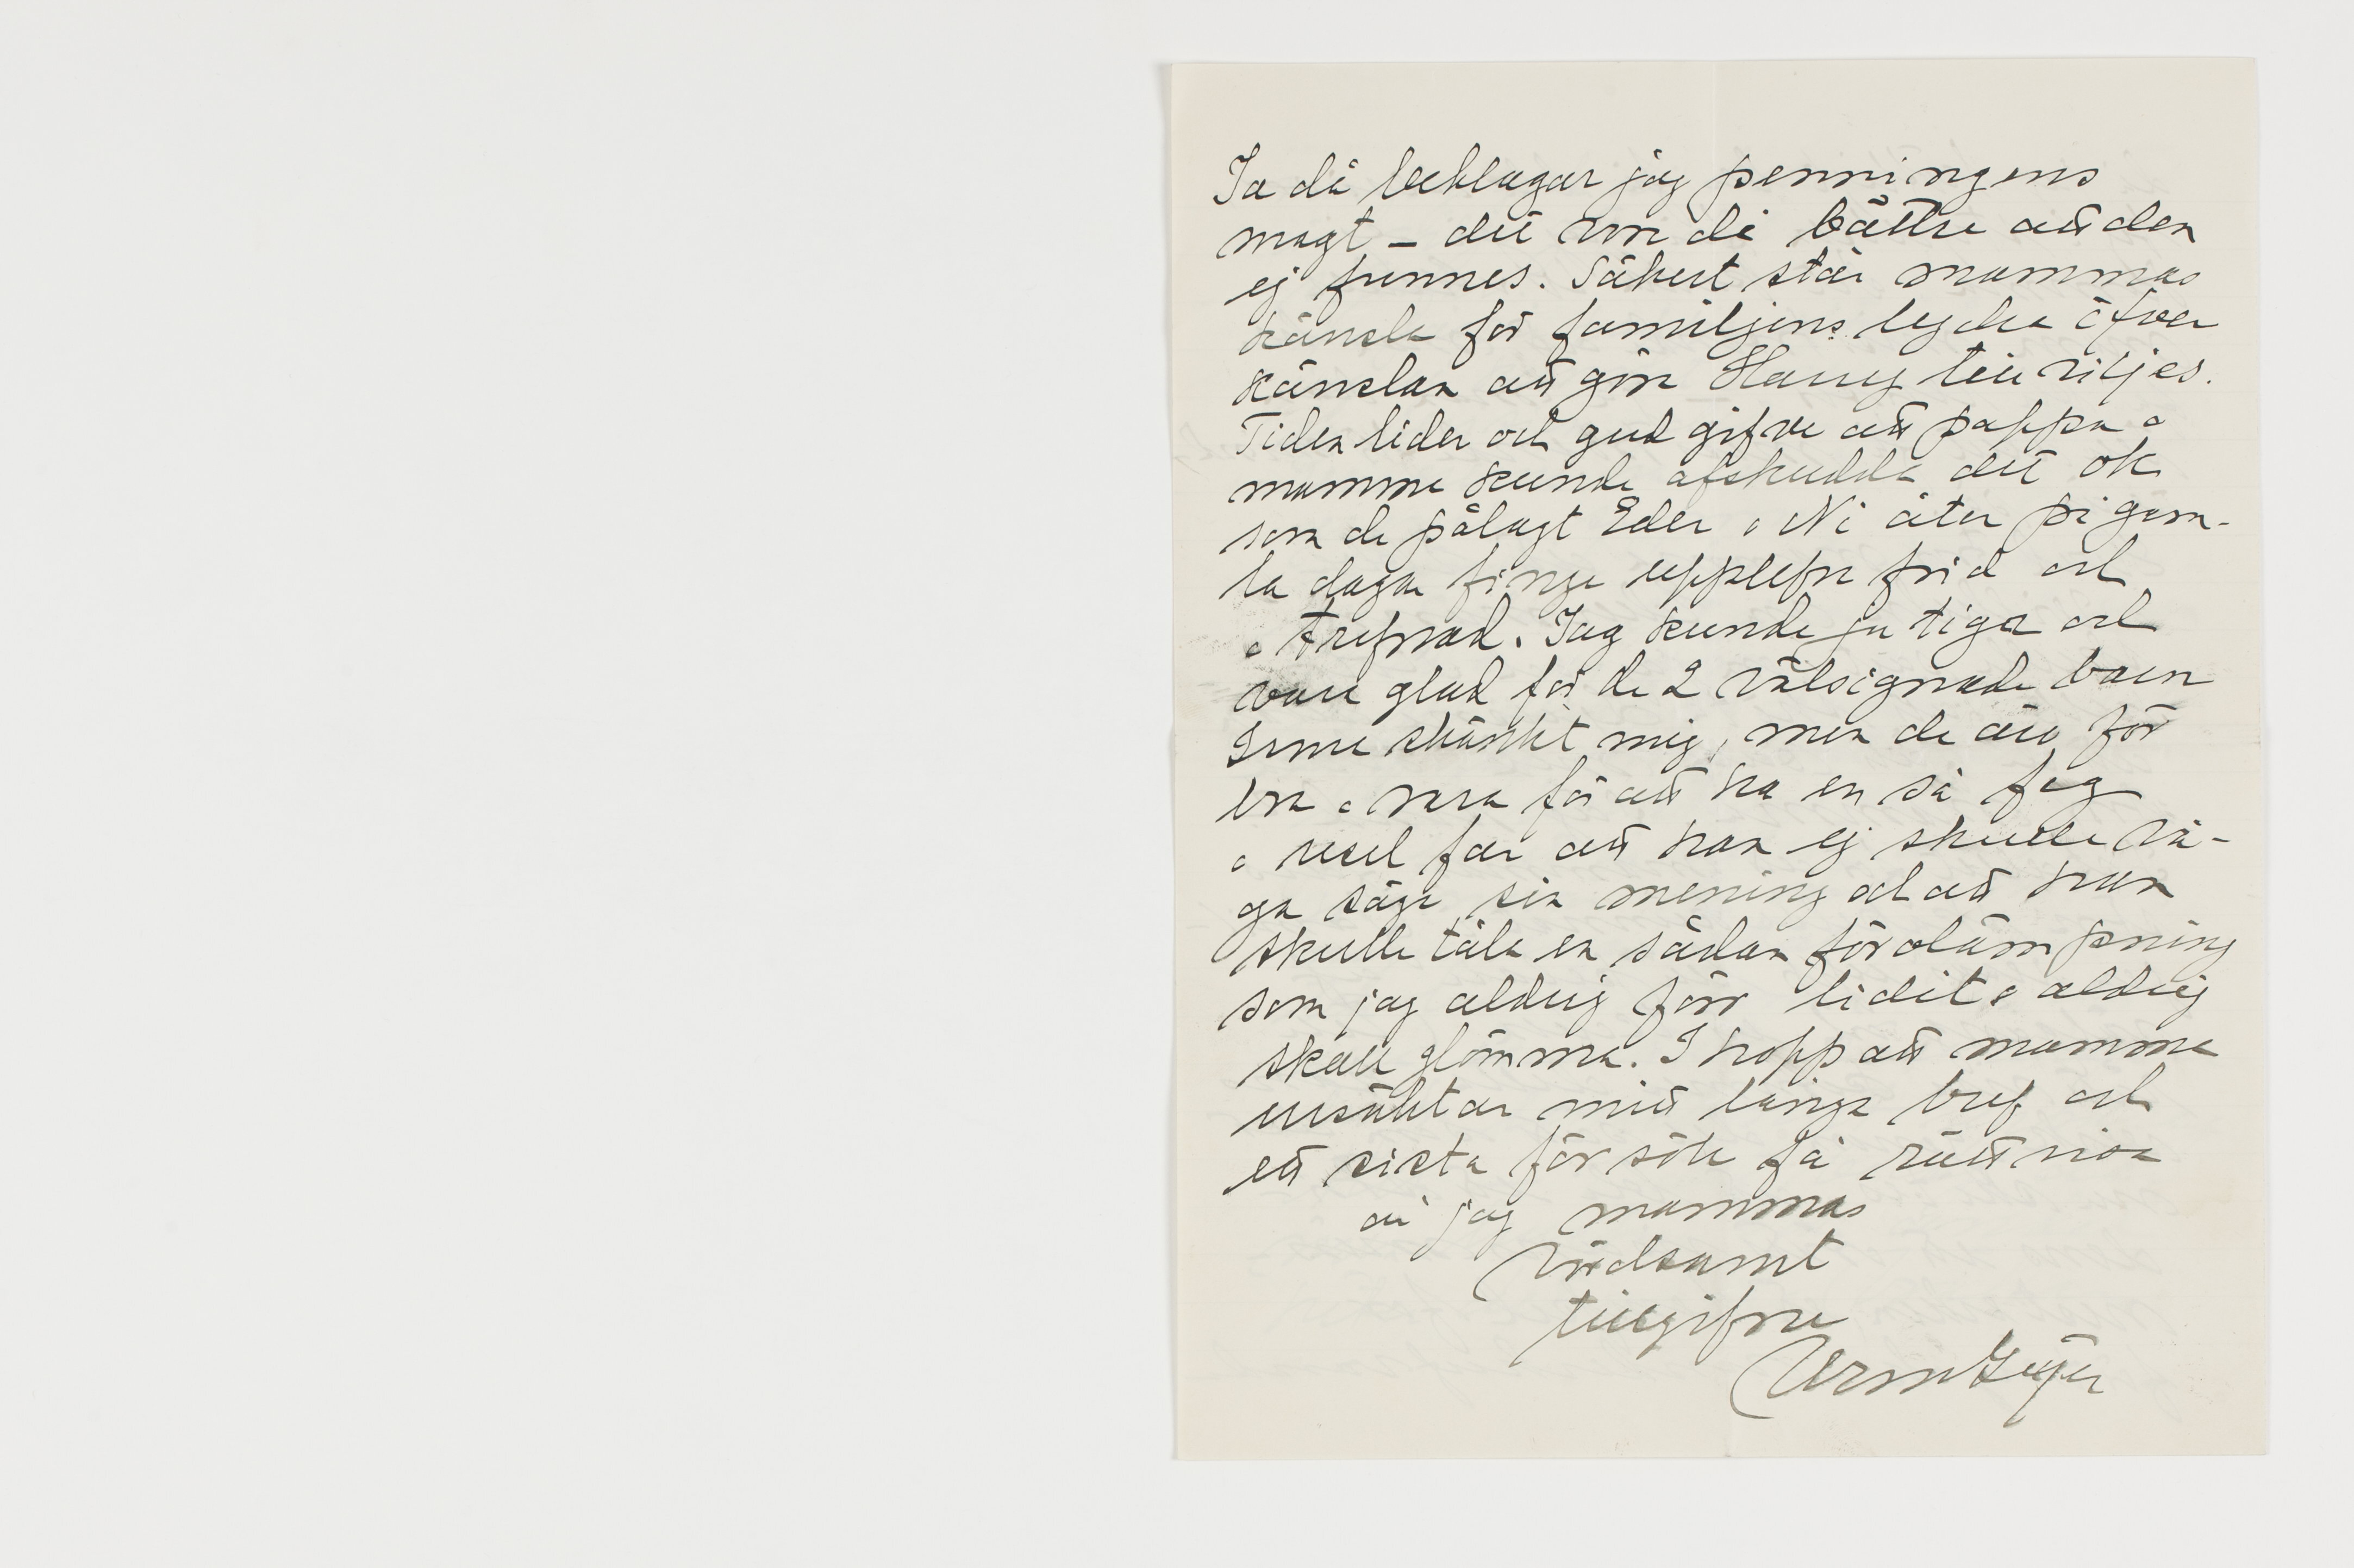 Ja då beklagar jag penningens
magt – det vore då bättre att den
ej funnes. Säkert står mammas
känsla för familjens lycka öfver
känslan att göra Harry till viljes.
Tiden lider och gud gifve att pappa o
mamma kunde afskudda det ok
som de pålagt Eder o Ni åter på gam-
la dagar finge upplefva frid och
o trefnad. Jag kunde ju tiga och
vara glad för de 2 välsignade barn
Irma skänkt mig, men de äro för
bra o rara för att ha en så feg
o usel far att han ej skulle vå-
ga säga sin mening och att han
skulle tåla en sådan förolämpning
som jag aldrig förr lidit o aldrig
skall glömma. I hopp att mamma
ursäktar mitt långa bref och
ett sista försök få rättvisa
är jag mammas
Vördsamt
tillgifne